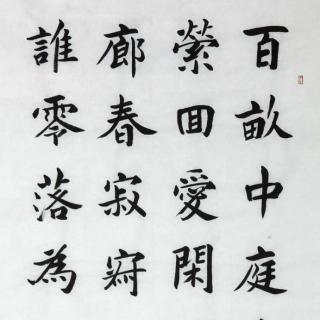 百畝中庭
縈回愛閑
廊春寂
誰零落為